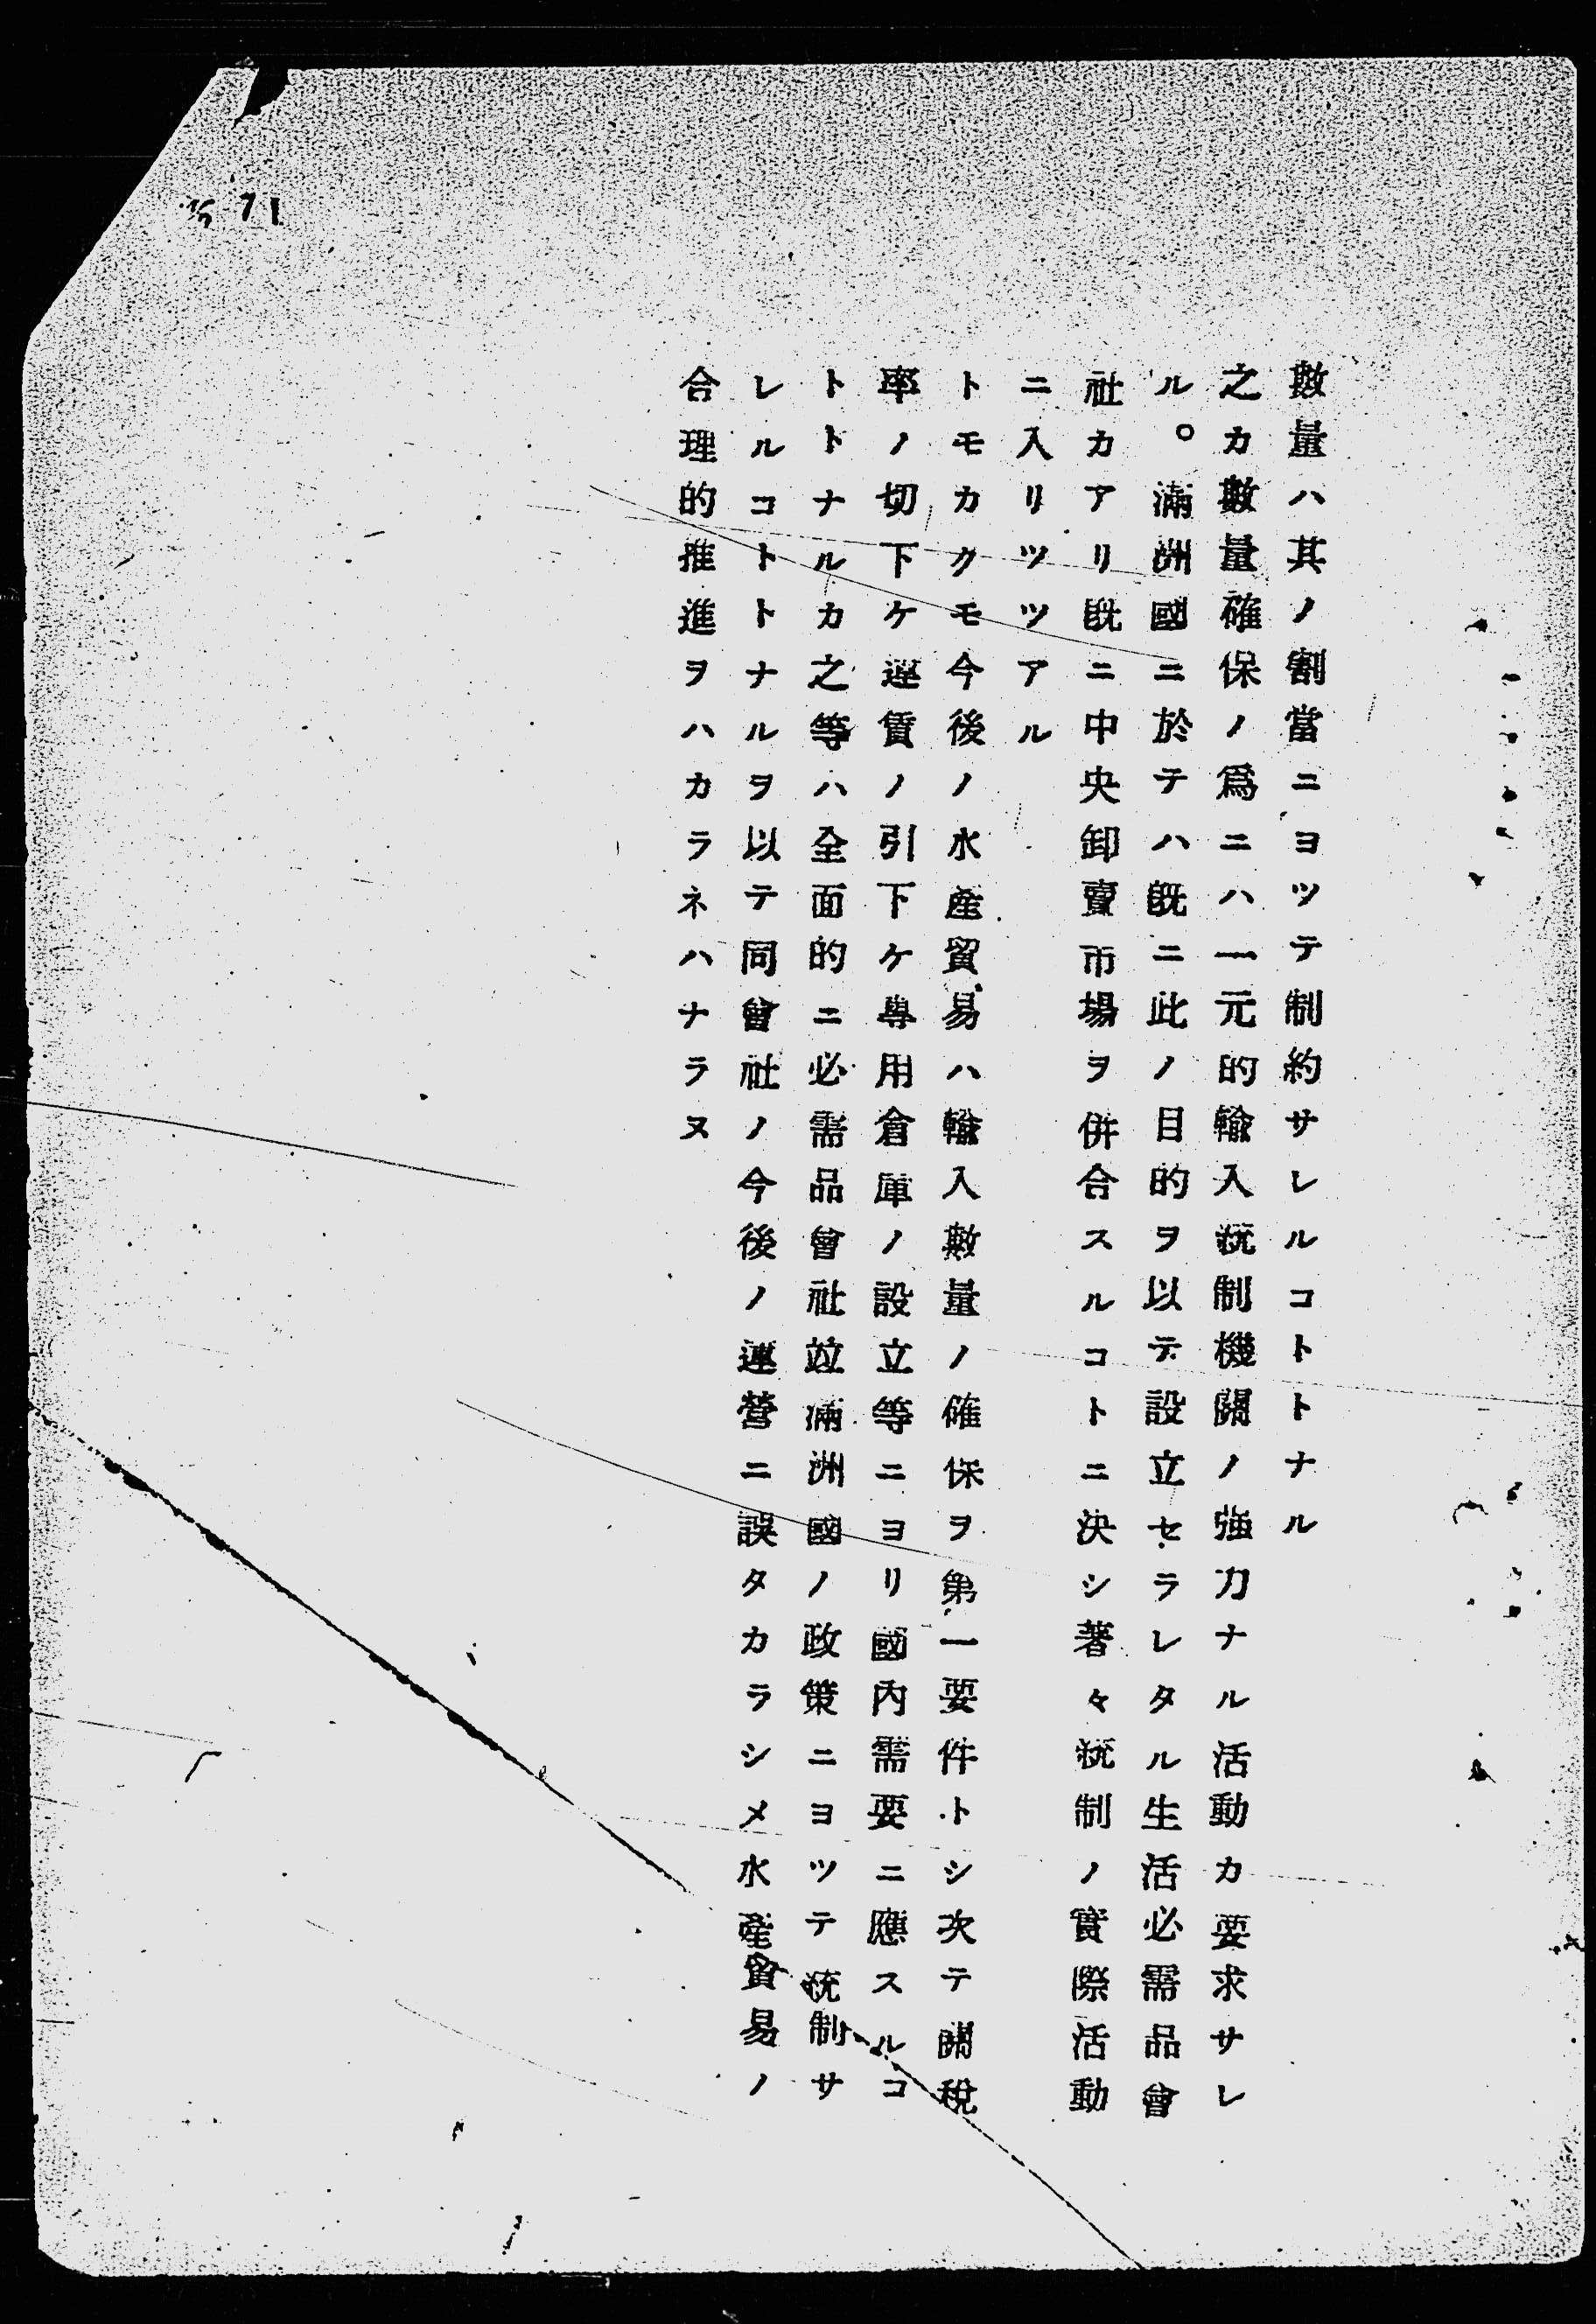 71
數量ハ其ノ割當ニヨツテ制約サレルコトトナル
之カ數量確保ノ爲ニハ一元的輸入統制機關ノ強力ナル活動カ要求サレ
ル。滿洲國ニ於テハ既ニ此ノ目的ヲ以テ設立セラレタル生活必需品會
社カアリ既ニ中央卸賣市場ヲ併合スルコトニ決シ著々統制ノ實際活動
ニ入リツツアル
トモカクモ今後ノ水產貿易ハ輸入數量ノ確保ヲ第一要件トシ次テ關稅
率ノ切下ケ運賃ノ引下ケ專用倉庫ノ設立等ニヨリ國內需要ニ應スルコ
トトナルカ之等ハ全面的ニ必需品會社竝滿洲國ノ政策ニヨツテ統制サ
レルコトトナルヲ以テ同會社ノ今後ノ運營ニ誤タカラシメ水產貿易ノ
合理的推進ヲハカラネハナラヌ